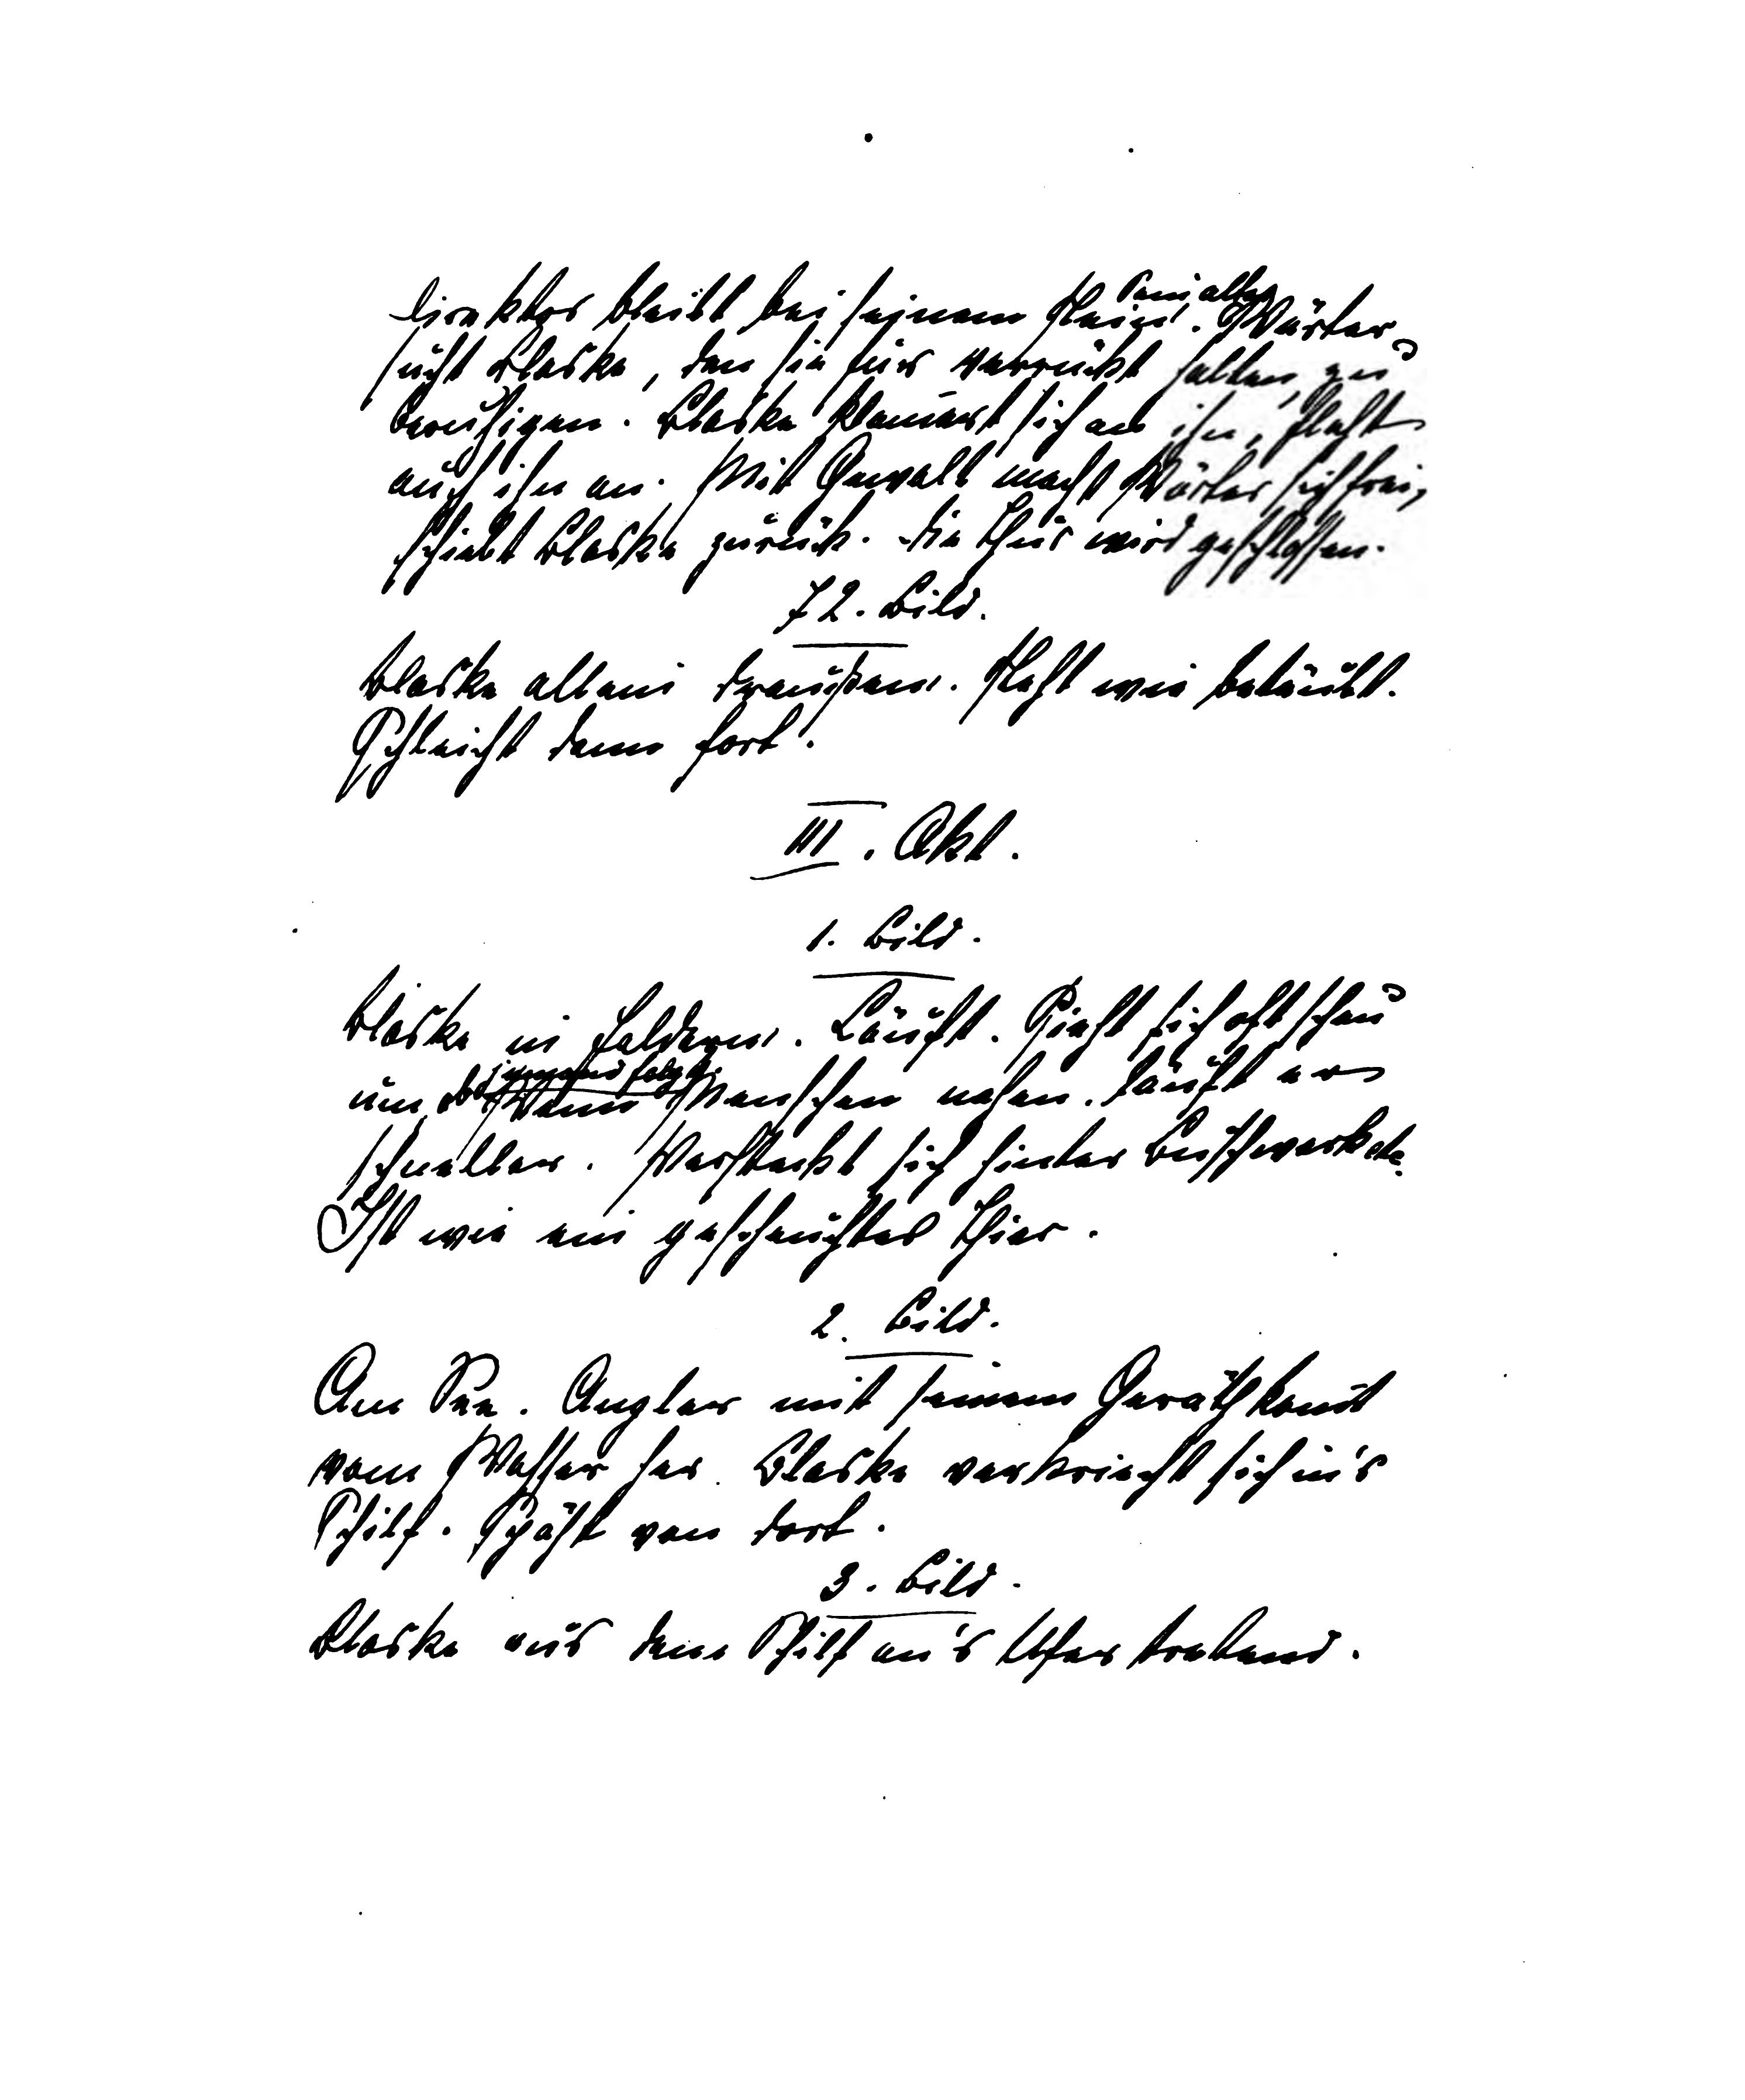 Direktor bleibt bei seinem Nein. Der alte Wärter
sucht Blaske, den sie für verrückt halten, zu
beruhigen. Blaske klam̄ert sich an ihn, fleht
auch ihn an. Mit Gewalt macht Wärter sich frei,
schiebt Blaske zurück. Die Thür wird geschlossen.
72. Bild.
Blaske allein draußen. Steht wie betäubt.
Schleicht dann fort.
III. Akt.
1. Bild.
Blaske in Feldern. Läuft. Sieht sich oft scheu
um, ob jemand folgt. Wenn Menschen nahen, läuft er
schneller. Versteckt sich hinter Buschwerk etc.
Ist wie ein gescheuchtes Thier.
2. Bild.
Am See. Angler mit seinem Geräth kom̄t
vom Wasser her. Blaske verkriecht sich in's
Schilf. Späht von dort.
3. Bild.
Blaske aus dem Schilf an's Ufer tretend.